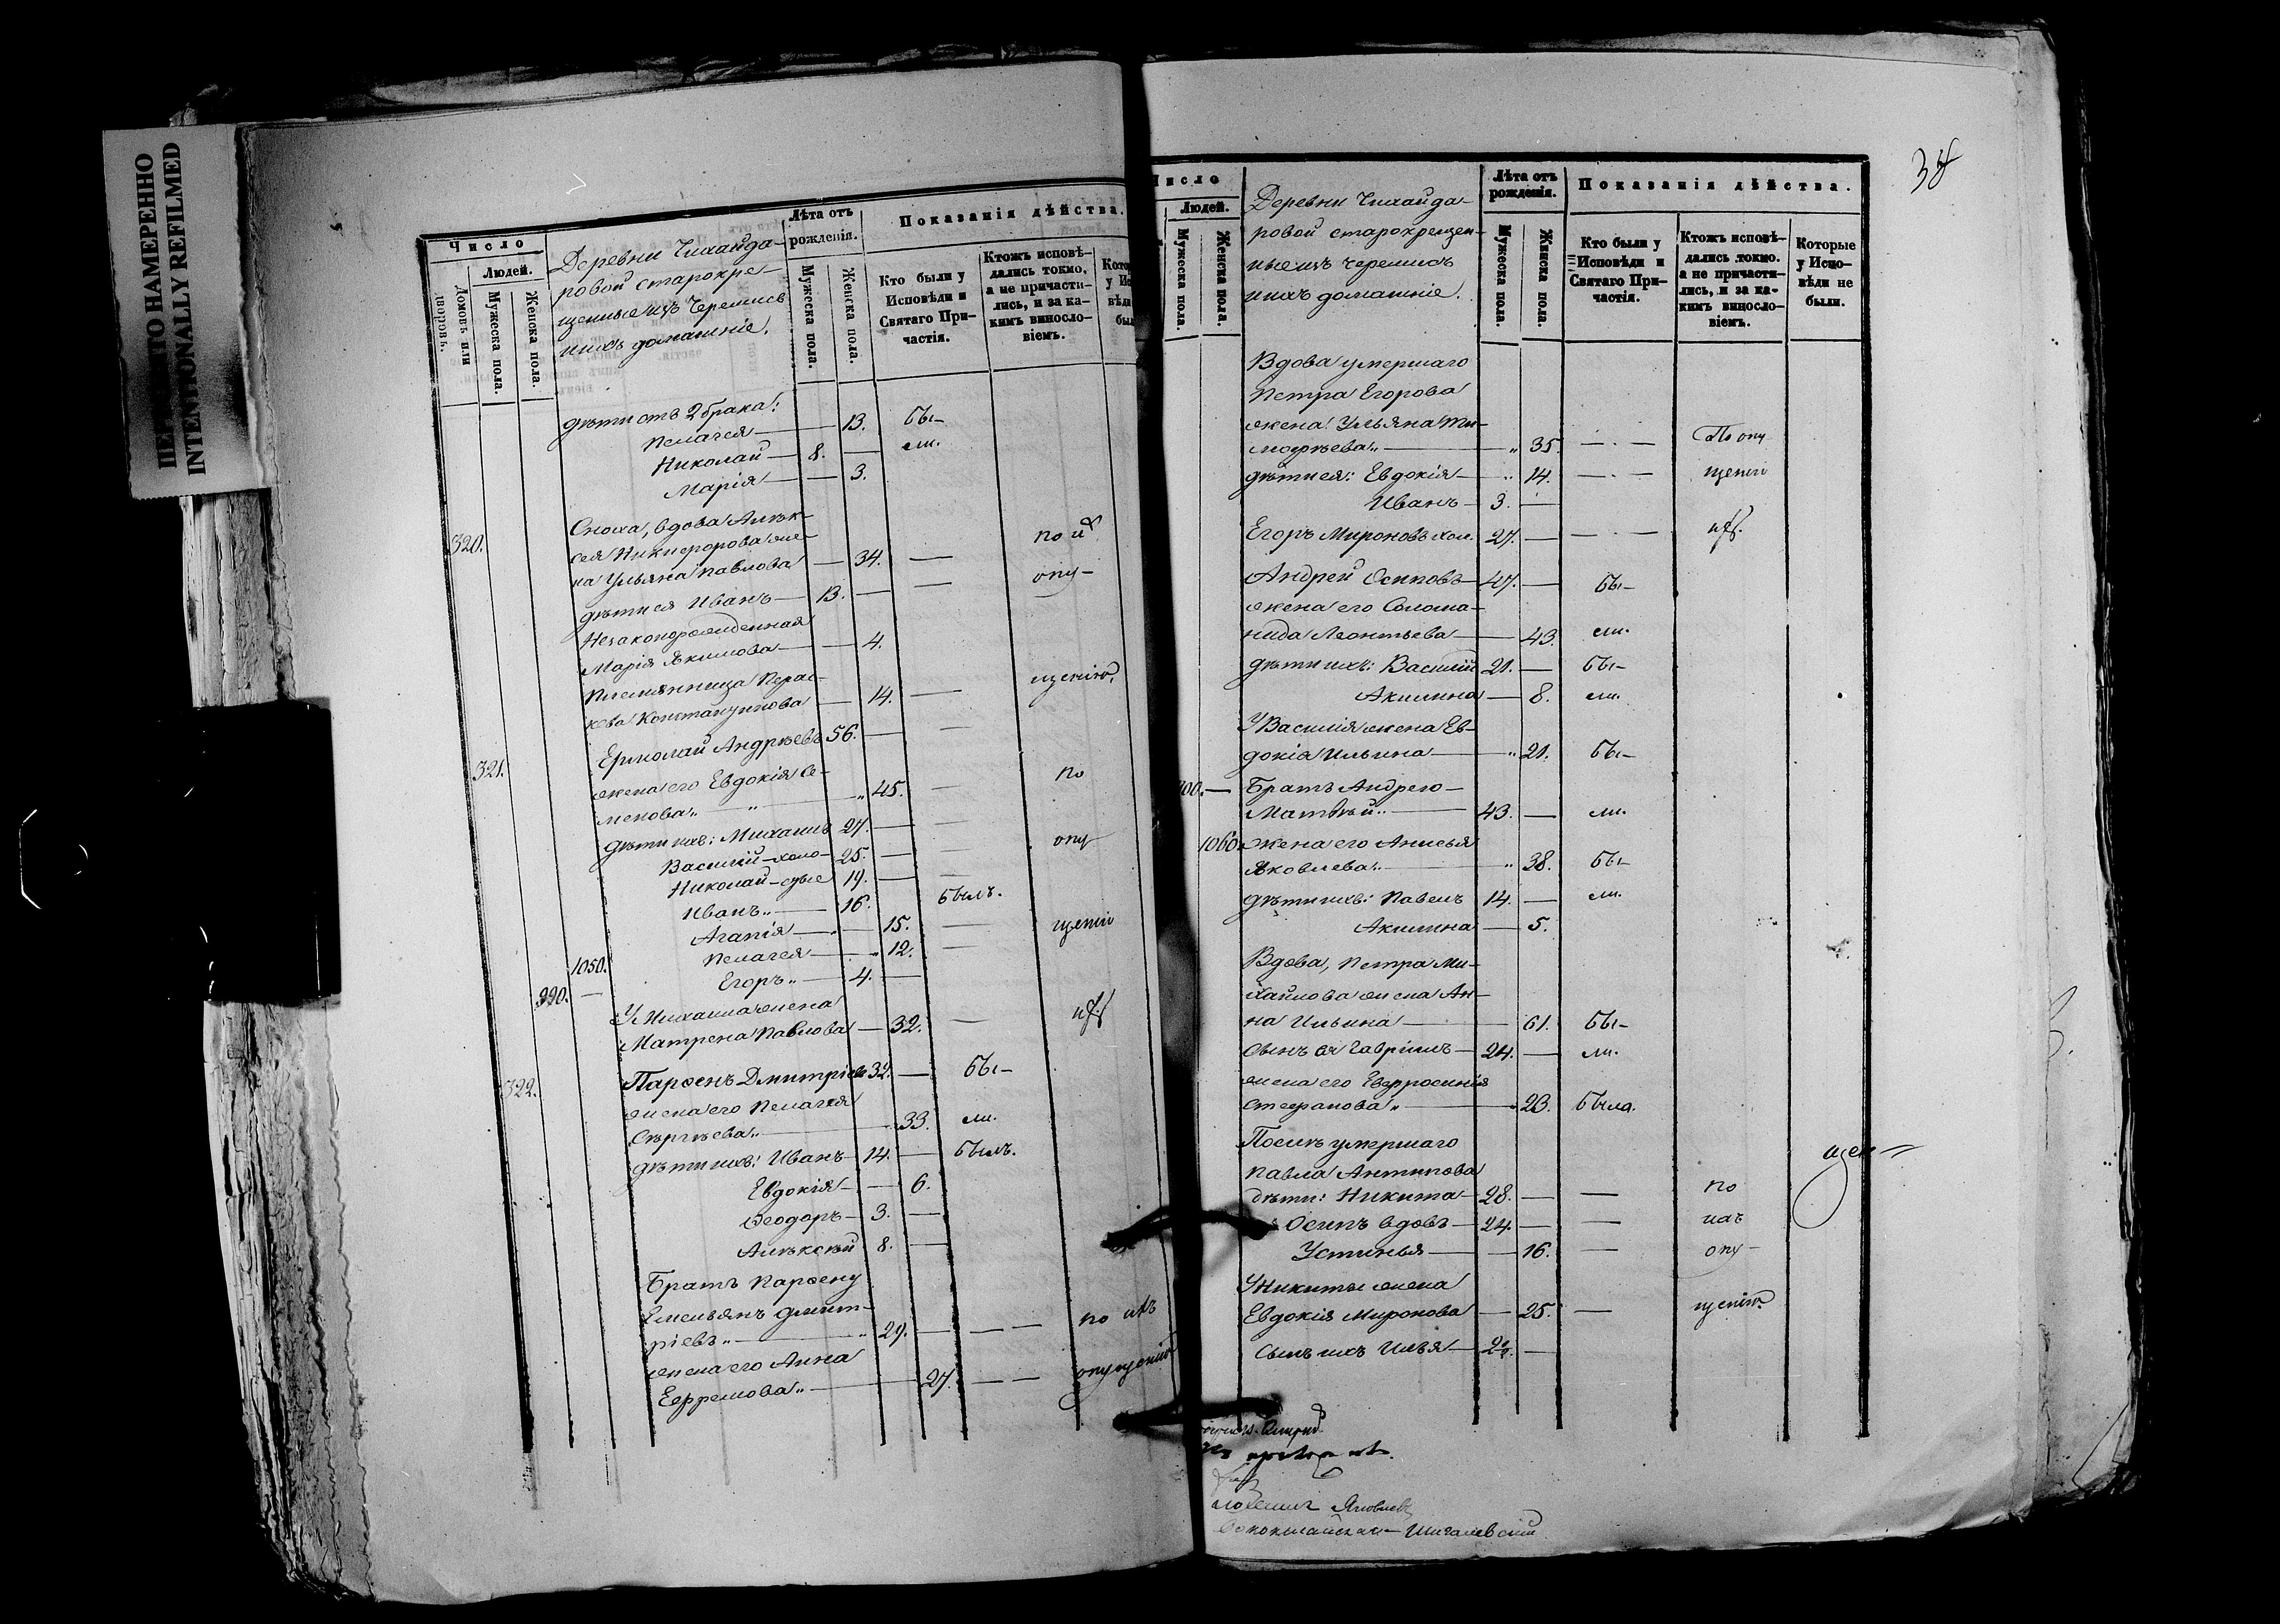 ПЕРЕСНЯТО НАМЕРЕННО
INTENTIONALLY REFILMED
Число
Домовъ или дворовъ.
Людей.
Мужеска пола.
Женска пола.
Деревни Чихайда-
ровой старокре-
щенные изъ Черемисъ
ихъ домашніе.
Лѣта отъ рожденія.
Мужеска пола.
Женска пола.
Показанія дѣйства.
Кто были у Исповѣди и Святаго При-частія.
Ктожъ исповѣ-дались токмо, а не причасти-лись, и за ка-кимъ винословіемъ.
дѣти отъ 2 брака:
Пелагея — 13. бы-
Николай — 8. — ли.
Марія — — 3.
320. Сноха, вдова Алек-
сея Никифорова же-
на Ульяна Павлова — 34. — по и
дѣти ея Иванъ — 13. — — опу-
Незаконорожденная
Марія Якимова — — 4.
Племянница Парас-
кева Константинова — 14. — щенію.
321. Ермолай Андрѣевъ 56. — —
жена его Евдокія Се-
менова „ — „ 45. — по
дѣти ихъ: Михаилъ 27. — —
Василій — холо- 25. — — опу
Николай — стые 19. — —
Иванъ „ — 16. былъ.
Агапія — — 15. —
Пелагея — „ 12. — щенію
1050. Егоръ „ — 4. —
990. — У Михаила жена
Матрена Павлова — 32. —
322. Парѳенъ Дмитріевъ 32. — бы-
жена его Пелагея
Сергѣева „ — 33. ли.
дѣти ихъ: Иванъ — 14. — былъ.
Евдокія — — 6.
Ѳеодоръ — 3. —
Алексѣй 8. —
Братъ Парѳену
Емельянъ Дмит-
ріевъ „ — „ 29. — — по ихъ
жена его Анна
Ефремова „ — 27. — — опущенію
38
Число
Людей.
Мужеска пола.
Женска пола.
Деревни Чихайда-
ровой старокрещен-
ные изъ черемисъ
ихъ домашніе.
Лѣта отъ рожденія.
Мужеска пола.
Женска пола.
Показанія дѣйства.
Кто были у Исповѣди и Святаго При-частія.
Ктожъ исповѣ-дались токмо. а не причасти-лись, и за ка-кимъ винословіемъ.
Которые у Испо-вѣди не были.
Вдова умершаго
Петра Егорова
жена Ульяна Ти-
мофѣева „ — „ 35. — · — По опу
дѣти ея: Евдокія — „ 14. — · — щенію
Иванъ — 3. —
Егоръ Мироновъ хол. 27. — — · —
Андрей Осиповъ — 47. — бы-
жена его Солома-
нида Леонтьева — — 43. ли.
дѣти ихъ: Василій 21. — бы-
Акилина — 8. ли.
У Василія жена Ев-
докія Ильина — „ 21. бы-
Братъ Андрею —
Матвѣй „ — 43. — ли.
1060. жена его Анисья
Яковлева „ — „ 38. бы-
дѣти ихъ: Павелъ 14. — ли.
Акилина — 5.
Вдова, Петра Ми-
хайлова жена Ан-
на Ильина — — 61. бы-
Сынъ ея Гавріилъ — 24. — ли.
жена его Евфросинія
Стефанова „ — „ 23. была.
Послѣ умершаго
Павла Антипова
дѣти: Никита — 28. — — по
Осипъ вдовъ — 24. — — ихъ
Устинья — — 16. — опу-
У Никиты жена
Евдокія Миронова — 25. — щенію
Сынъ ихъ Илья — —
Яковлевъ